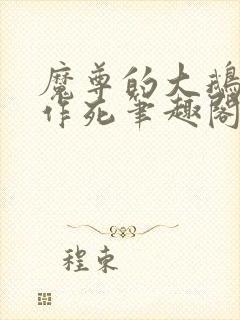 魔尊的大鹅
作死笔趣阁
程束